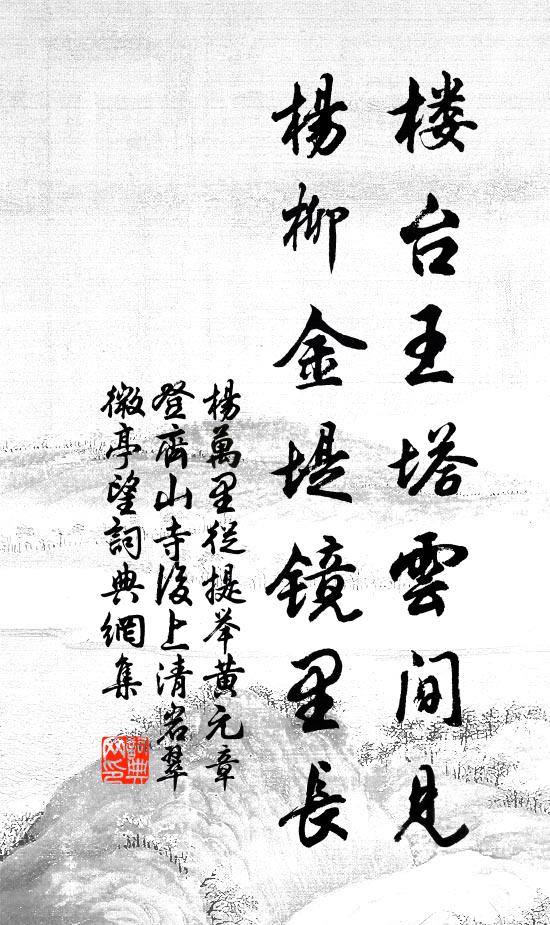 楼台王塔雲間見
楊柳金堤鏡里長
楊萬里從提举黄元章
登齊山寺後上清岩翠
微亭望詞典網集
詞典
网印